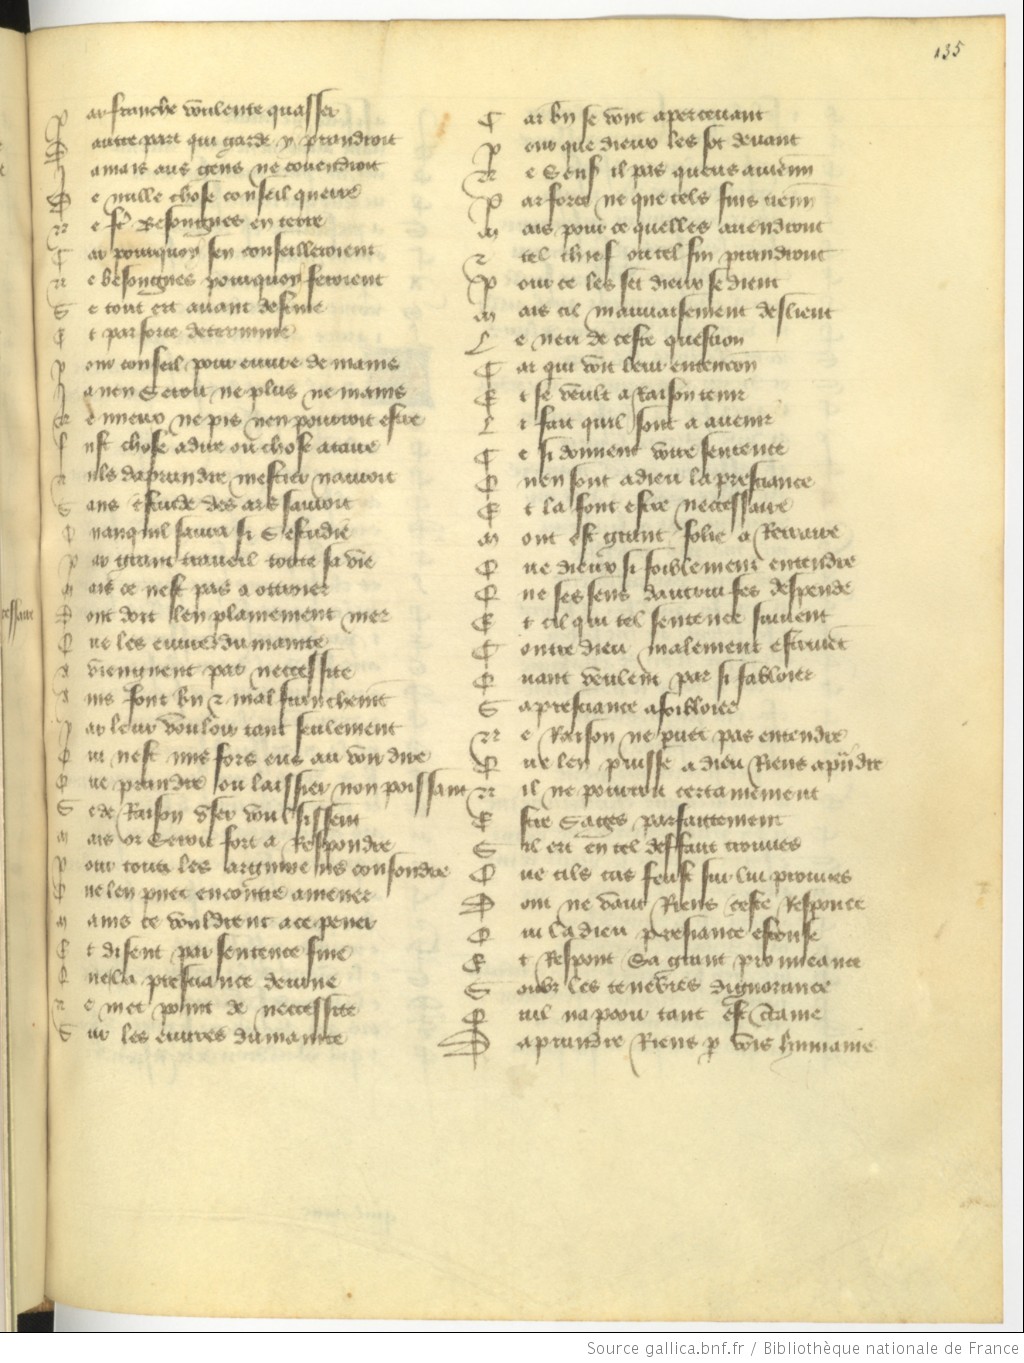 135
P ar franche voulente quasser
D autre part qui garde y prandroit
J amais aus gens ne couendroit
D e nulle chose conseil querre
N e fere Besongnes en terre
C ar pourquoy sen conseilleroient
N e besongnes pourquoy feroient
S e tout ert auant destine
E t par force determine
P our conseil pour euure de mains
J a nen Seroit ne plus ne mains
N e mieux ne pis nen pourroit estre
F ust chose a dire ou chose a taire
N uls daprandre mestier nauroit
S ans estude des ars sauroit
Q uanquil saura si S estudie
P ar grant trauail toute sa vie
M ais ce nest pas a ottroier
D ont doit len plainement nier
Q ue les euures dumainte
A viengnent par neccessite
A ins font bien et mal franchement
P ar leur vouloir tant seulement
Q ui nest riens fors eus au voir dire
Q ue prandre ou laissier non poissant
S e de Raison vser voulsissent
M ais or Seroit fort a Respondre
P our touz les argumens confondre
Q ue len puet encontre amener
M ains ce vouldrent a ce pener
E t disent par sentence fine
Q ue la presciance deuine
N e met point de neccessite
S ur les euures dumainte
C ar bien se vont aperceuant
P our que dieux les sot deuant
N e Sensuit il pas queus auiennent
P ar force ne que tels fins tiennent
M ais pour ce quelles auendront
E t tel chief ou tel fin prandront
P our ce les set dieux se dient
M ais cil mauuaisement deslient
L e neu de ceste question
C ar qui voit leur entencion
E t se veult a Raison tenir
L i fait quil sont a auenir
C e si donnent voire sentence
Q uen sont a dieu la presciance
E t la font estre neccessaire
M out est grant folie a Retraire
Q ue dieux si foiblement entendre
Q ue ses sens dautrui fes despende
E t cil qui tel sentence suiuent
C ontre dieu malement estriuent
Q uant veulent par si fabloier
S a presciance afoibloier
N e Raison ne puet pas entendre
Q ue len puisse a dieu Riens aprendre
N il ne pourroit certainement
E stre Sages parfaitement
S il ert en tel deffaut trouues
Q ue cils cas feust sur lui prouues
D ont ne vaut Riens ceste Responce
Q ui la dieu presciance esconse
E t Respont Sa grant prouueance
S oubz les tenebres dignorance
Q uil na pooir tant est certaine
D aprandre Riens par voeis humaine